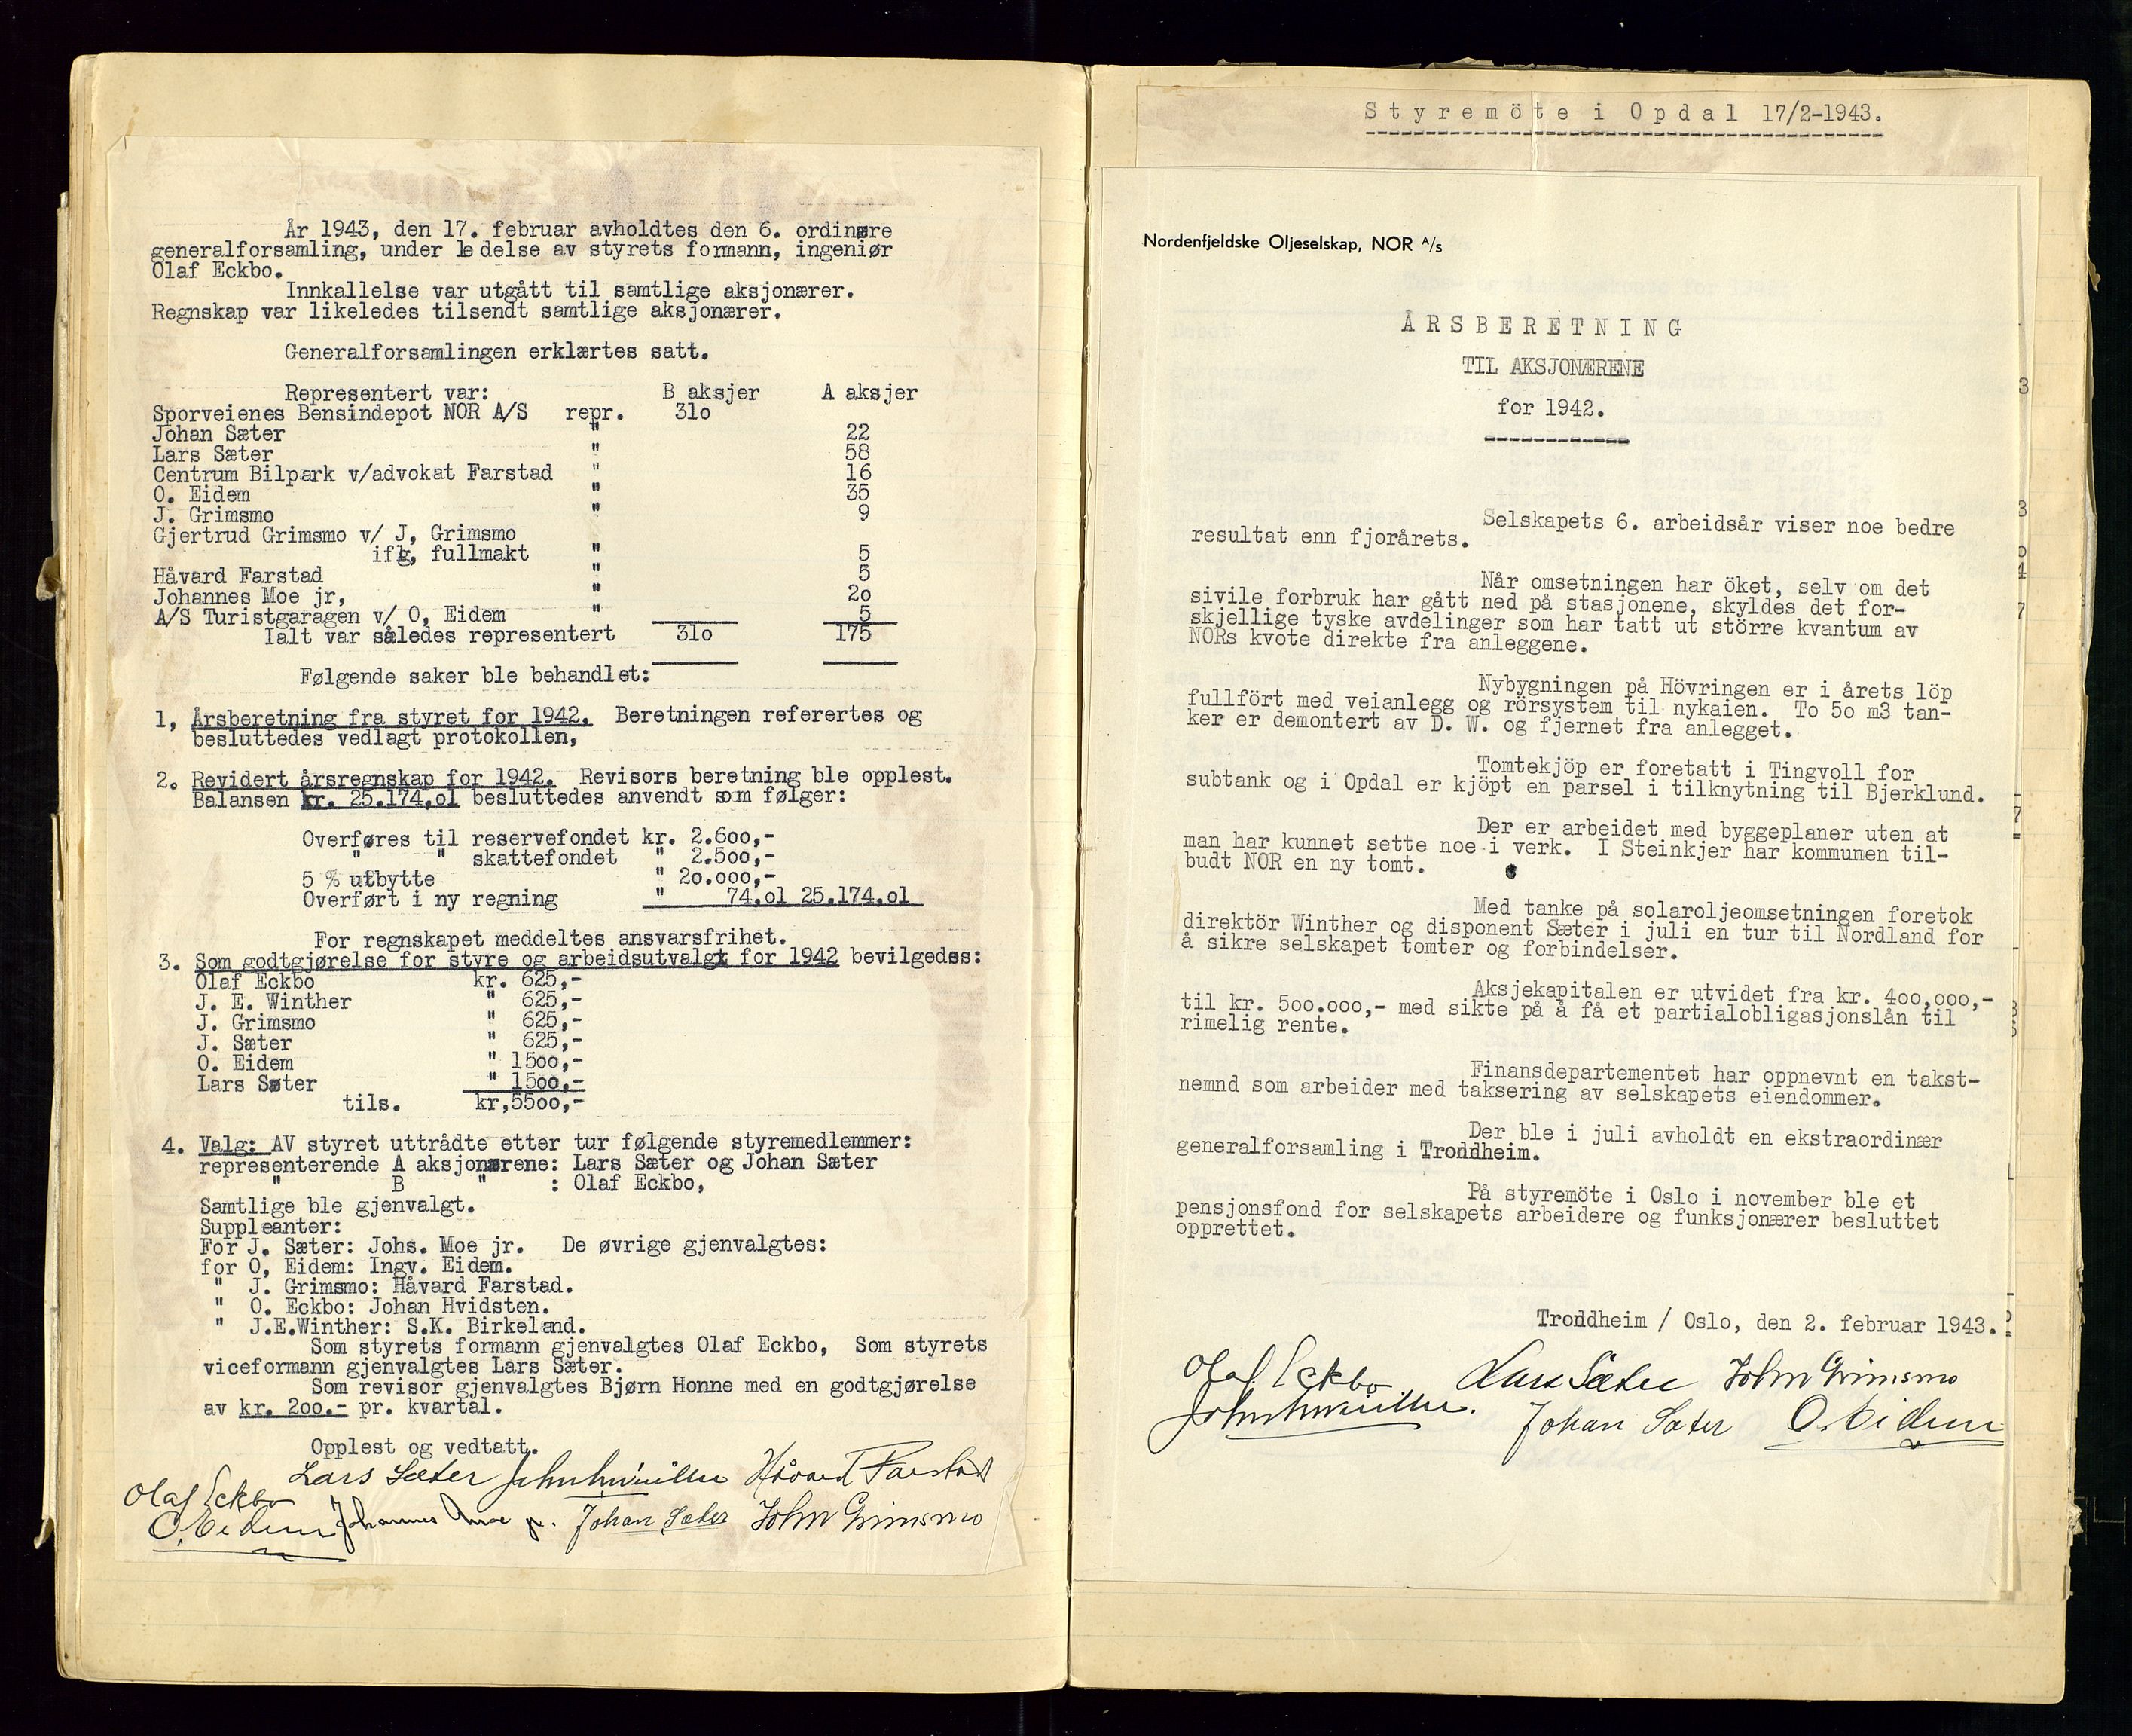 År 1943, den 17. februar avholdtes den 6. ordinære
generalforsamling, under ledelse av styrets formann, ingeniør
Olaf Eckbo.
Innkallelse var utgått til samtlige aksjonærer.
Regnskap var likeledes tilsendt samtlige aksjonærer.
Generalforsamlingen erklærtes satt.
Representert var: B aksjer A aksjer
Sporveienes Bensindepot NOR A/S repr. 31o
Johan Sæter " 22
Lars Sæter " 58
Centrum Bilpark v/advokat Farstad " 16
O. Eidem " 35
J. Grimsmo " 9
Gjertrud Grimsmo v/ J, Grimsmo
iflg, fullmakt " 5
Håvard Farstad " 5
Johannes Moe jr, " 2o
A/S Turistgaragen v/ O, Eidem " 5
Ialt var således representert 31o 175
Følgende saker ble behandlet:
1, Årsberetning fra styret for 1942. Beretningen referertes og
besluttedes vedlagt protokollen,
2. Revidert årsregnskap for 1942. Revisors beretning ble opplest.
Balansen kr. 25.174,o1 besluttedes anvendt som følger:
Overføres til reservefondet kr. 2.6oo,-
" " skattefondet " 2.5oo,-
5 % utbytte " 2o.ooo,-
Overført i ny regning " 74,o1 25.174,o1
For regnskapet meddeltes ansvarsfrihet.
3. Som godtgjørelse for styre og arbeidsutvalgt for 1942 bevilgedes:
Olaf Eckbo kr. 625,-
J. E. Winther " 625,-
J. Grimsmo " 625,-
J. Sæter " 625,-
O. Eidem " 15oo,-
Lars Sæter " 15oo,-
tils. kr,55oo,-
4. Valg: AV styret uttrådte etter tur følgende styremedlemmer:
representerende A aksjonærene: Lars Sæter og Johan Sæter
" B " : Olaf Eckbo,
Samtlige ble gjenvalgt.
Suppleanter:
For J. Sæter: Johs. Moe jr. De øvrige gjenvalgtes:
for O, Eidem: Ingv. Eidem.
" J. Grimsmo: Håvard Farstad.
" O. Eckbo: Johan Hvidsten.
" J.E.Winther: S.K. Birkeland.
Som styrets formann gjenvalgtes Olaf Eckbo, Som styrets
viceformann gjenvalgtes Lars Sæter.
Som revisor gjenvalgtes Bjørn Honne med en godtgjørelse
av kr. 2oo.- pr. kvartal.
Opplest og vedtatt.
Olaf Eckbo Lars Sæter Håvard Farstad
O. Eidem Johannes Moe jr. Johan Sæter John Grimsmo
Styremöte i Opdal 17/2-1943.
Nordenfjeldske Oljeselskap, NOR A/s
ÅRSBERETNING
TIL AKSJONÆRENE
for 1942.
Selskapets 6. arbeidsår viser noe bedre
resultat enn fjorårets.
Når omsetningen har öket, selv om det
sivile forbruk har gått ned på stasjonene, skyldes det for-
skjellige tyske avdelinger som har tatt ut större kvantum av
NORs kvote direkte fra anleggene.
Nybygningen på Hövringen er i årets löp
fullfört med veianlegg og rörsystem til nykaien. To 5o m3 tan-
ker er demontert av D. W. og fjernet fra anlegget.
Tomtekjöp er foretatt i Tingvoll for
subtank og i Opdal er kjöpt en parsel i tilknytning til Bjerklund.
Der er arbeidet med byggeplaner uten at
man har kunnet sette noe i verk. I Steinkjer har kommunen til-
budt NOR en ny tomt.
Med tanke på solaroljeomsetningen foretok
direktör Winther og disponent Sæter i juli en tur til Nordland for
å sikre selskapet tomter og forbindelser.
Aksjekapitalen er utvidet fra kr. 4oo,ooo,-
til kr. 5oo.ooo,- med sikte på å få et partialobligasjonslån til
rimelig rente.
Finansdepartementet har oppnevnt en takst-
nemnd som arbeider med taksering av selskapets eiendommer.
Der ble i juli avholdt en ekstraordinær
generalforsamling i Trondheim.
På styremöte i Oslo i november ble et
pensjonsfond for selskapets arbeidere og funksjonærer besluttet
opprettet.
Trondheim / Oslo, den 2. februar 1943.
Olaf Eckbo Lars Sæter John Grimsmo
Johan Sæter O. Eidem